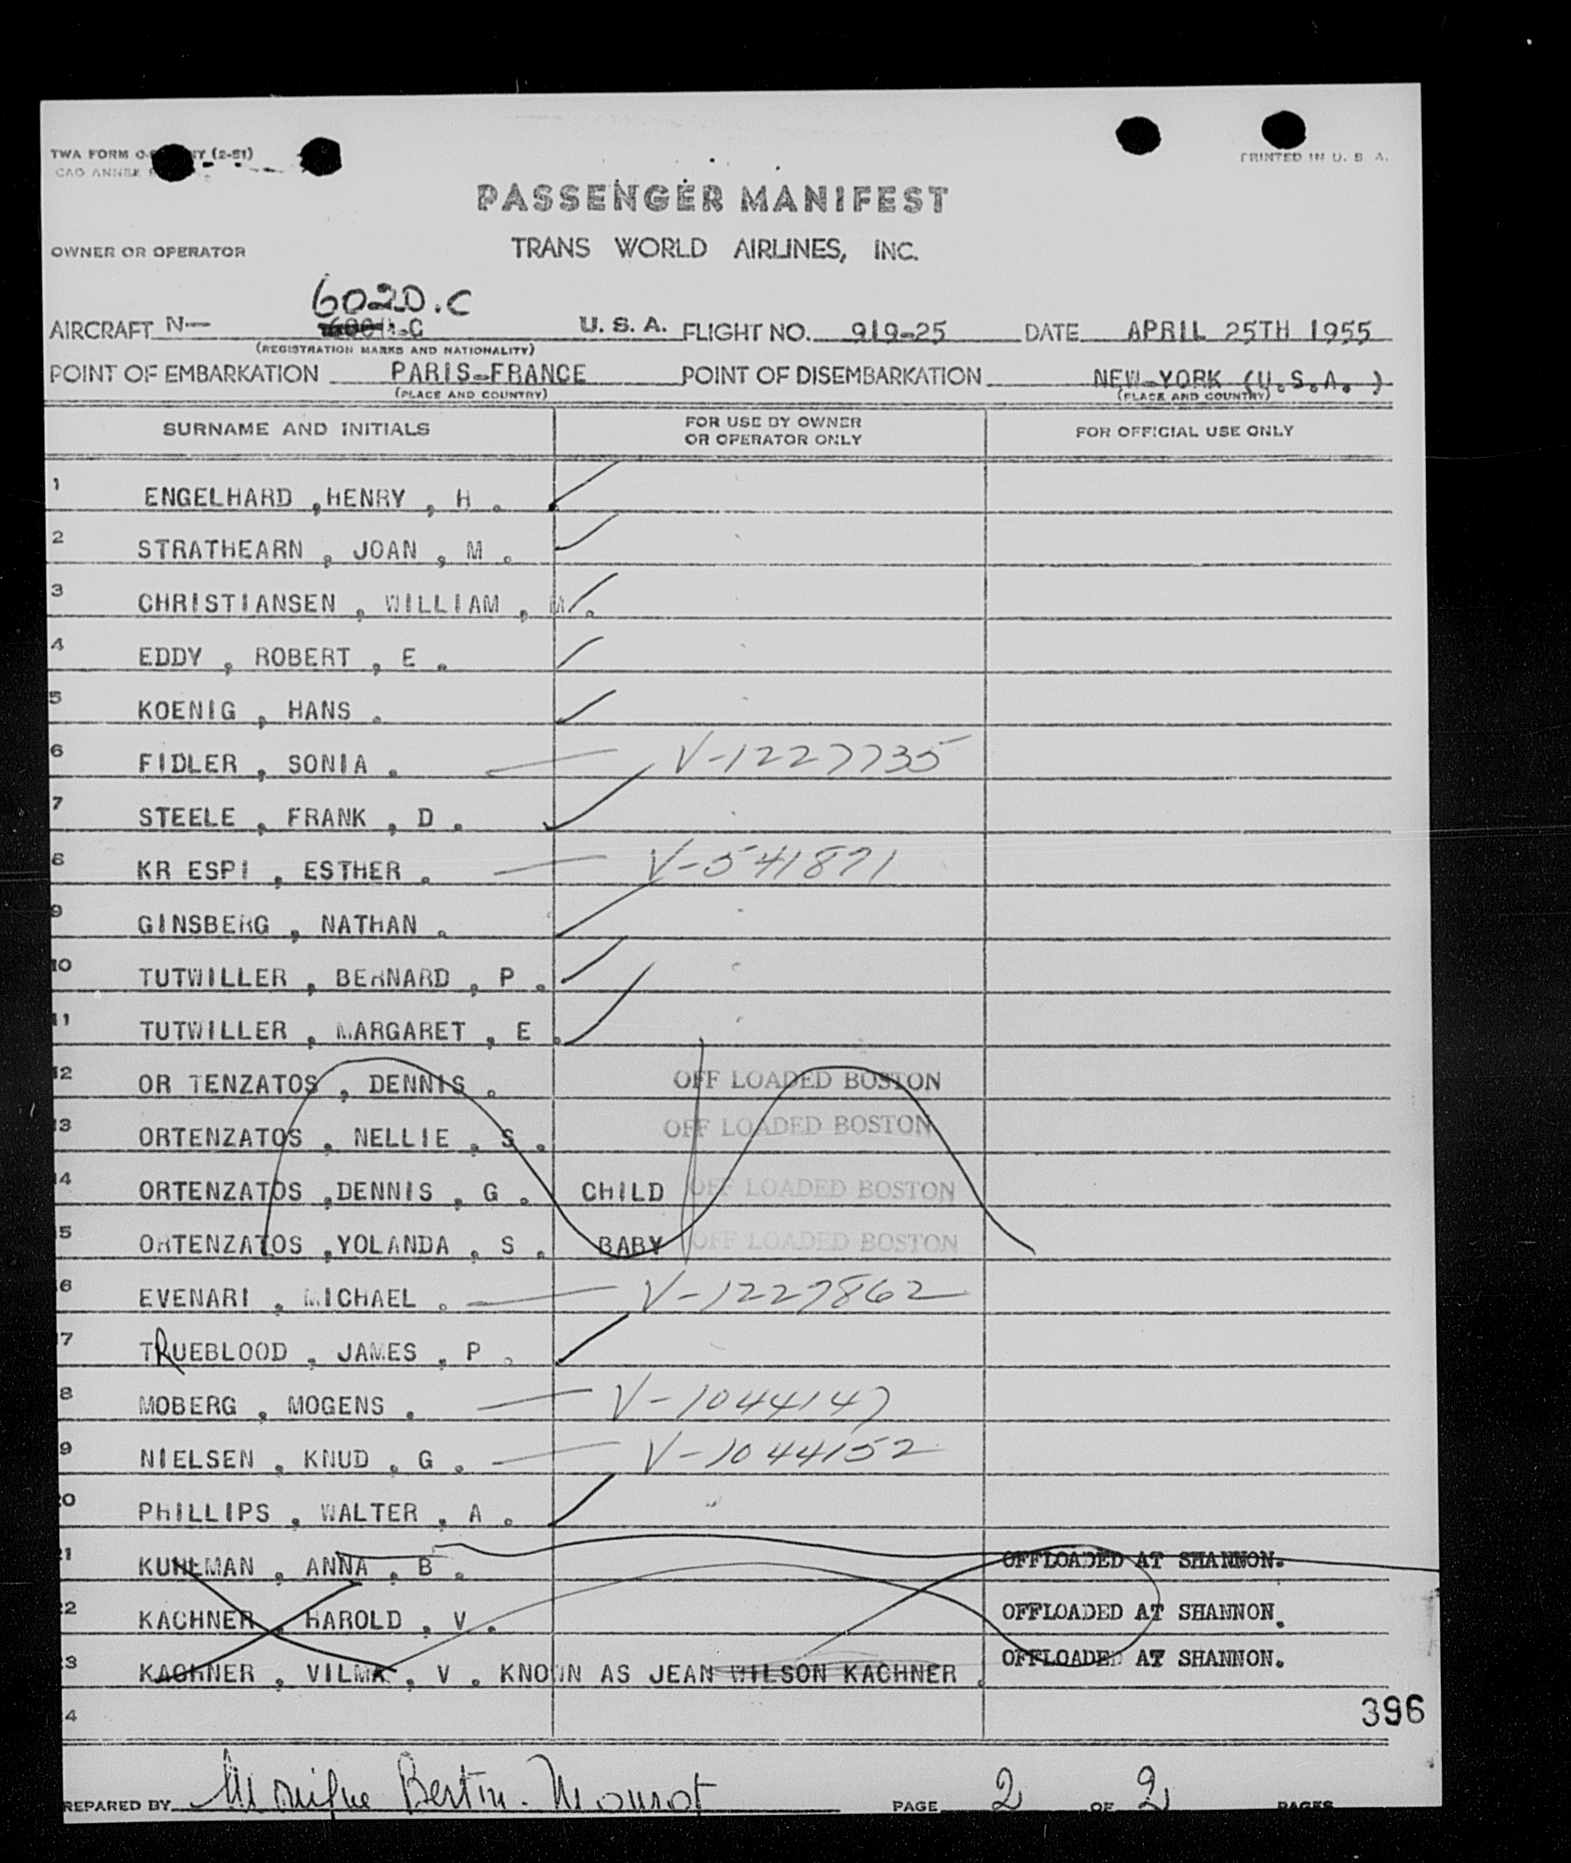 TWA FORM (2-51)
CAO ANNEX
PRINTED IN U. S. A.
PASSENGER MANIFEST
OWNER OR OPERATOR
TRANS WORLD AIRLINES, INC.
6020.C
AIRCRAFT N— U. S. A. FLIGHT NO. 919-25 DATE APRIL 25TH 1955
(REGISTRATION MARKS AND NATIONALITY)
POINT OF EMBARKATION PARIS-FRANCE POINT OF DISEMBARKATION NEW-YORK (U.S.A. )
(PLACE AND COUNTRY) (PLACE AND COUNTRY)
SURNAME AND INITIALS FOR USE BY OWNER OR OPERATOR ONLY FOR OFFICIAL USE ONLY
1 ENGELHARD ,HENRY , H .
2 STRATHEARN , JOAN , M .
3 CHRISTIANSEN , WILLIAM , M .
4 EDDY , ROBERT , E .
5 KOENIG , HANS .
6 FIDLER , SONIA . V-1227735
7 STEELE , FRANK , D .
8 KR ESPI , ESTHER . V-541871
9 GINSBERG , NATHAN .
10 TUTWILLER , BERNARD , P .
11 TUTWILLER , MARGARET , E .
12 OR TENZATOS , DENNIS . OFF LOADED BOSTON
13 ORTENZATOS , NELLIE , S . OFF LOADED BOSTON
14 ORTENZATOS ,DENNIS , G . CHILD OFF LOADED BOSTON
15 ORTENZATOS ,YOLANDA , S . BABY OFF LOADED BOSTON
6 EVENARI , MICHAEL . V-1227862
7 TRUEBLOOD , JAMES , P .
8 MOBERG , MOGENS . V-1044147
9 NIELSEN , KNUD , G . V-1044152
20 PHILLIPS , WALTER , A .
21 KUHLMAN , ANNA , B . OFFLOADED AT SHANNON.
22 KACHNER , HAROLD , V . OFFLOADED AT SHANNON.
3 KACHNER , VILMA , V . KNOWN AS JEAN WILSON KACHNER . OFFLOADED AT SHANNON.
4
396
REPARED BY Monique Bertin-Mourot PAGE 2 OF 2 PAGES